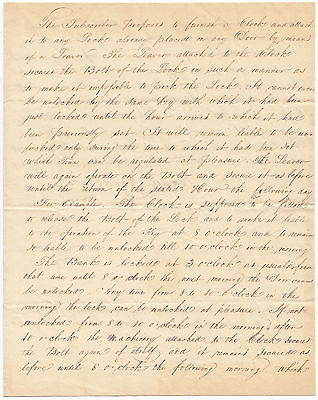 The Subscriber proposes to furnish a Clock and attach
it to any Lock already placed on any Door by means
of a Leaver. The Leaver attached to the Clock
secures the Bolt of the Lock in such a manner as
to make it impossible to pick the Lock. It cannot even
be unlocked by the same Key with which it had been
just locked until the hour arrives to which it had
been previously set. It will remain liable to be un-
locked only during the time to which it had been set
which Time can be regulated at pleasure. The Leaver
will again operate on the Bolt and secure it as before
untill the return of the stated Hour the following day
For Example. The Clock is supposed to be
to release the Bolt of the Lock and to make it liable
to the operation of the Key at 8 o'clock and to remain
so liable to be unlocked till 10 o'clock in the morning
The Bank is locked at 3 o'clock as usual from
that time until 8 o'clock the next morning the Door cannot
be unlocked. Any time from 8 to 10 o'clock in the
morning the lock can be unlocked at pleasure. If not
unlocked from 8 to 10 o'clock in the morning after
10 o'clock the Machinery attached to the Clock secures
the Bolt again of itself and it remains secured as
before until 8 o'clock the following morning which